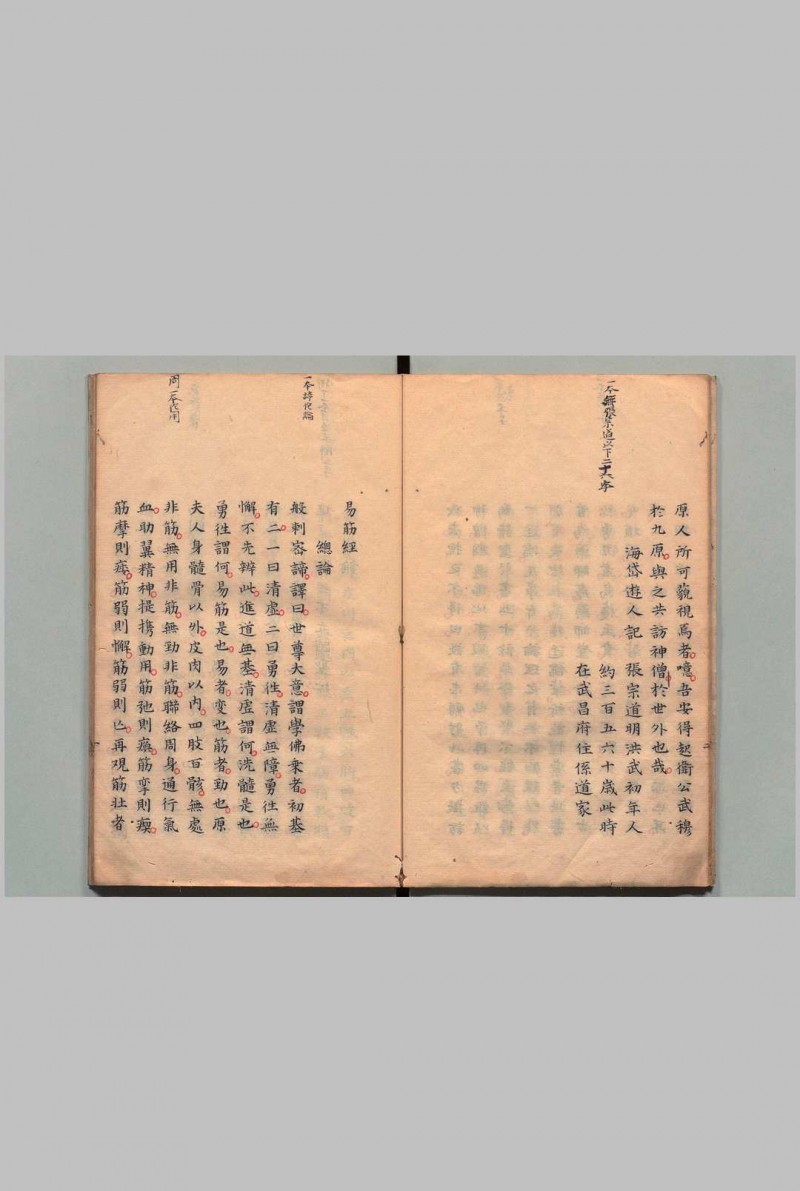 原人所可藐視焉者噫吾安得起衛公武穆
於九原與之共訪神僧於世外也哉
海岱遊人記張宗道明洪武初年人
約三百五六十歲此時
在武昌府住係道家
易筋經
總論
般剌密諦譯曰世尊大意謂學佛乘者初基
有二一曰清虛二曰勇往清虛無障勇往無
懈不先辨此進道無基清虛謂何洗髓是也
勇往謂何易筋是也易者變也筋者勁也原
夫人身髓骨以外皮肉以內四肢百骸無處
非筋無用非筋無勁非筋聯絡周身通行氣
血助翼精神提携動用筋弛則癱筋攣則瘈
筋靡則痿筋弱則懈筋弱則亡再观筋壮者
一本
周一本作用